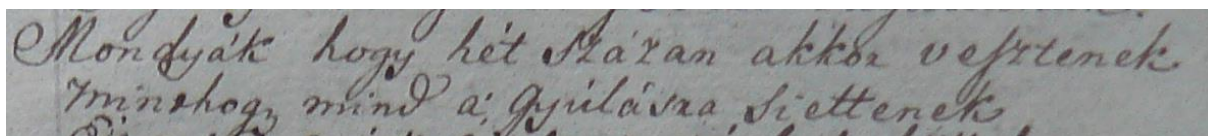 Mondyák hogy hét százan akkor vesztenek
minthogy mind a' Gyúlásra siettenek